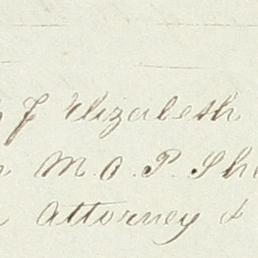 J Elizabeth
M. O. P. She
Attorney &